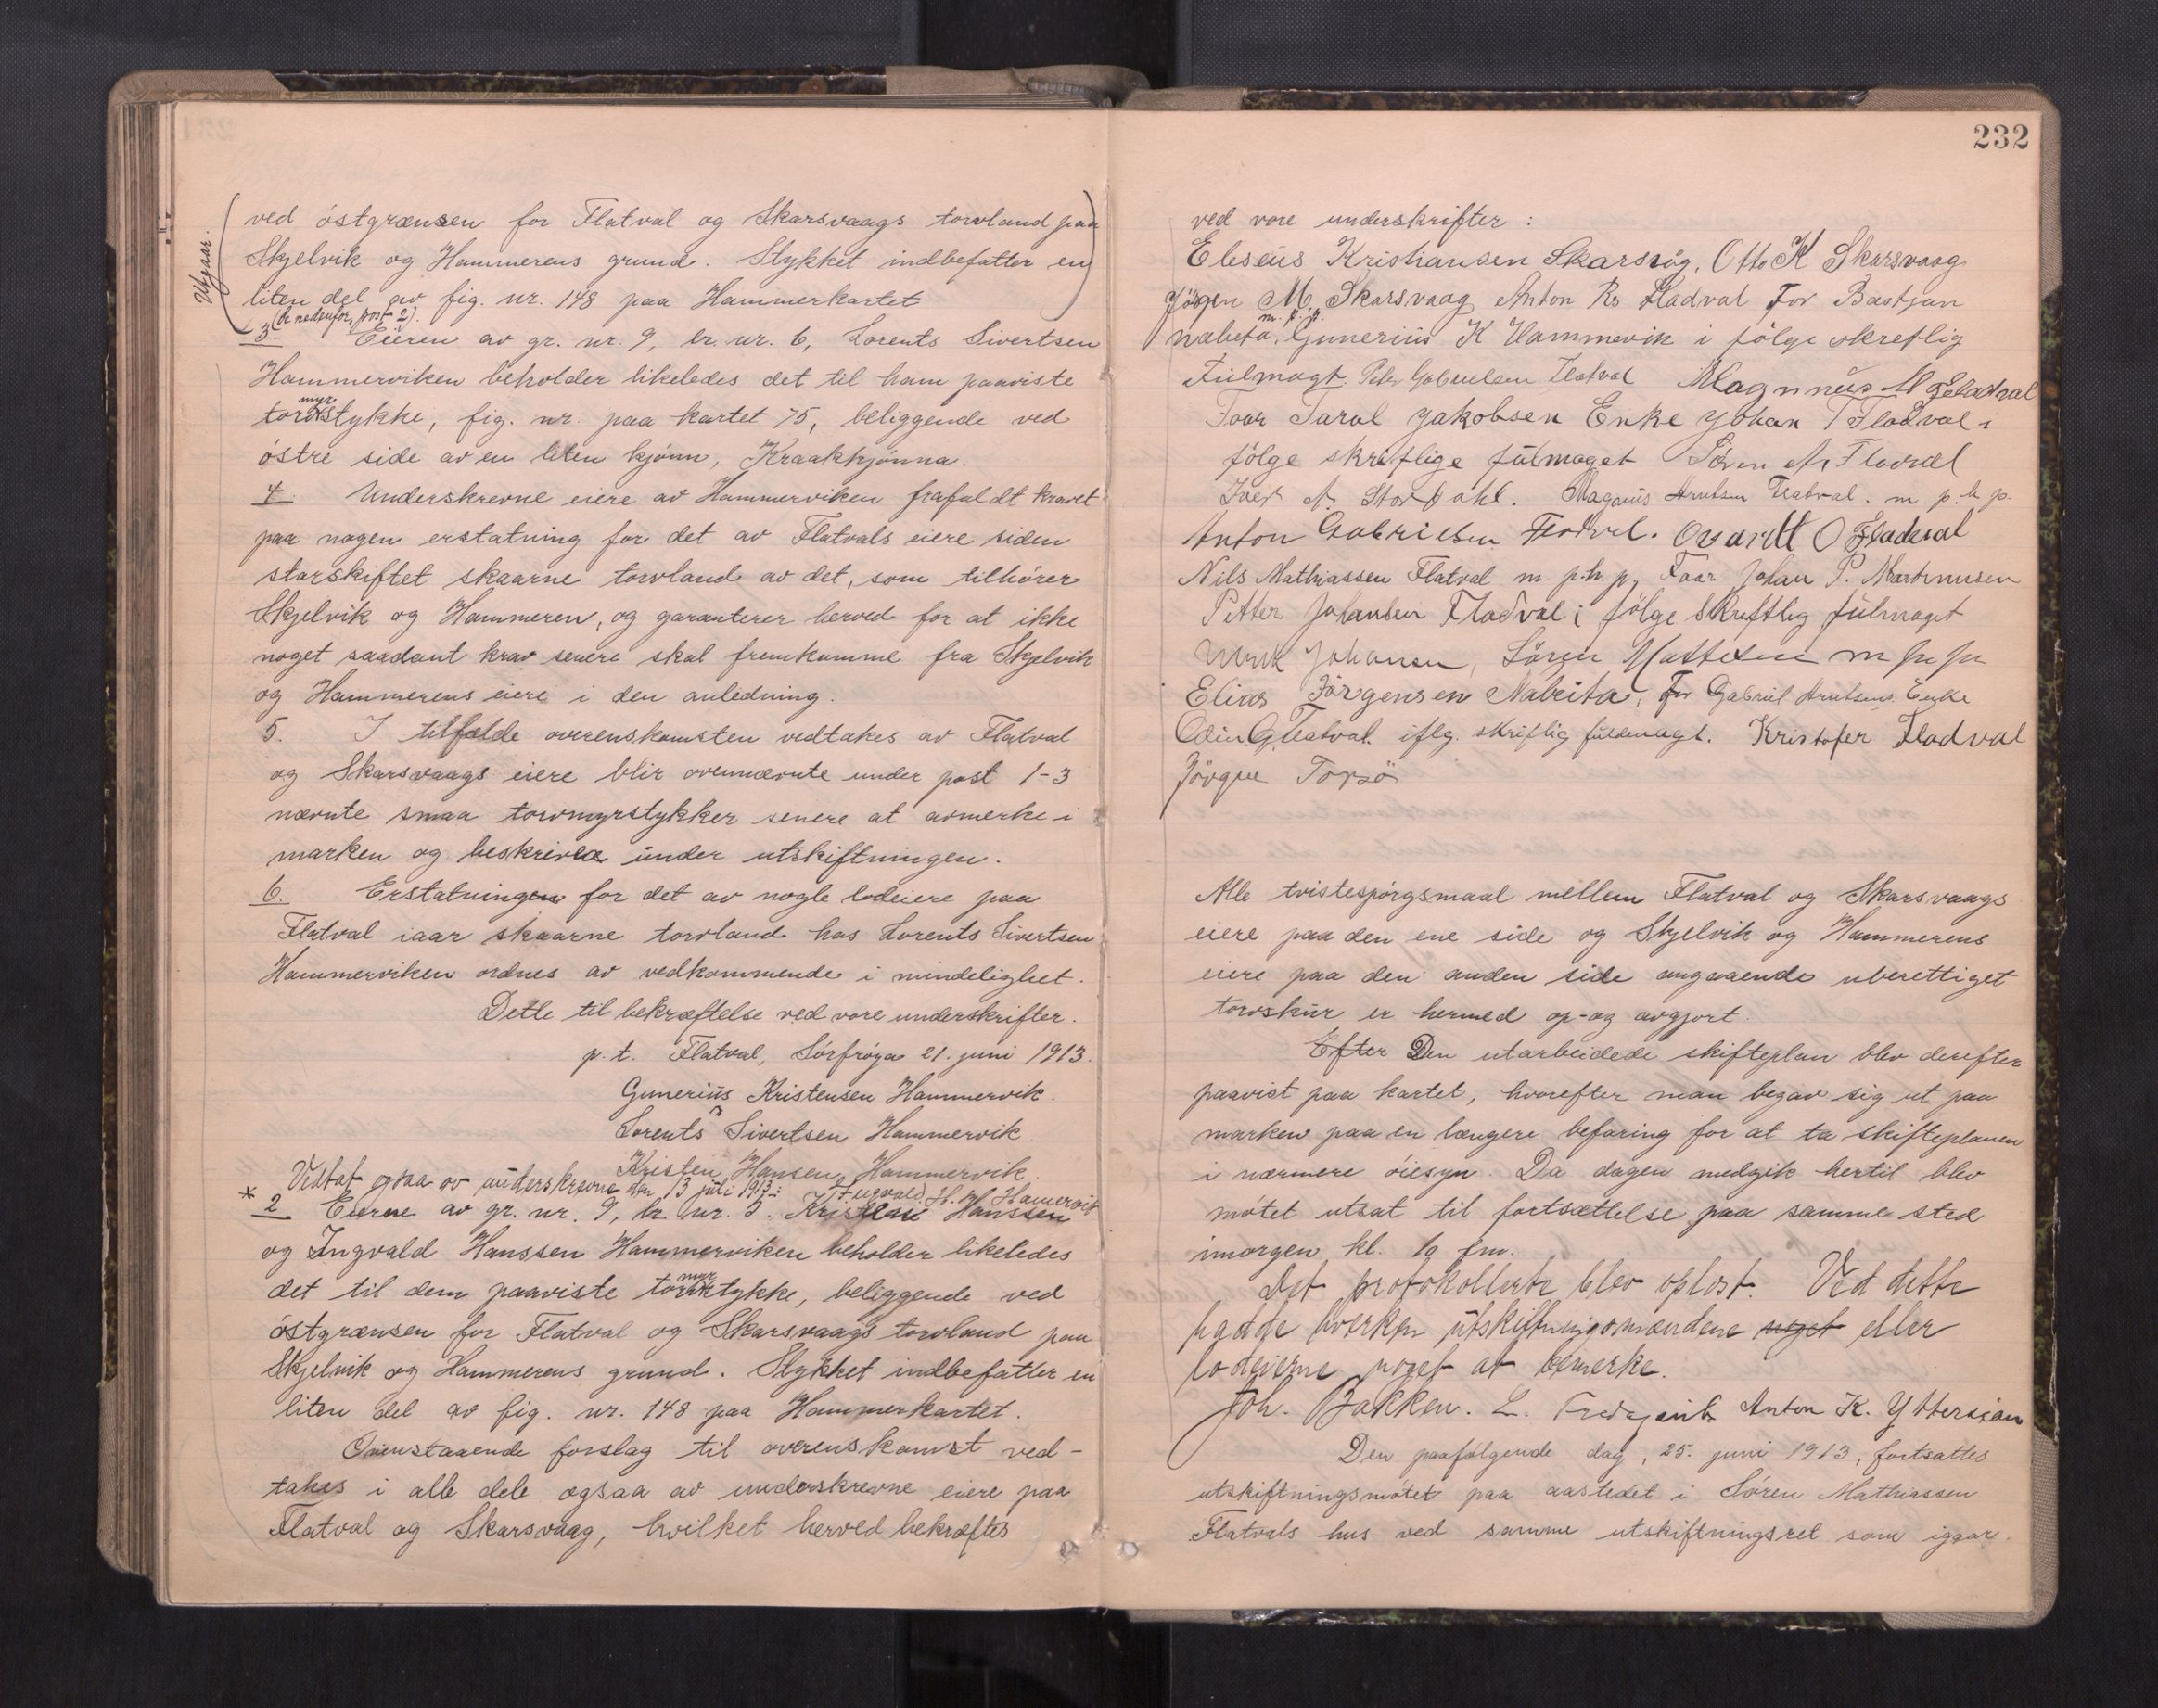 Utgaar.
ved östgrænsen for Flatval og Skarsvaags torvland paa
Skjelvik og Hammerens grund. Stykket indbefatter en
liten del av fig. nr. 148 paa Hammerkartet
(se nedenfor, post 2).
3. Eieren av gr. nr. 9, br. nr. 6, Lorents Sivertsen
Hammerviken beholder likeledes det til ham paaviste
torvmyrstykke, fig. nr. paa kartet 75, beliggende ved
östre side av en liten kjönn, Kraakkjönna.
4. Underskrevne eiere av Hammerviken frafaldt kravet
paa nogen erstatning for det av Flatvals eiere siden
storskiftet skaarne torvland av det, som tilhörer
Skjelvik og Hammeren, og garanterer herved for at ikke
noget saadant krav senere skal fremkomme fra Skjelvik
og Hammerens eiere i den anledning.
5. I tilfælde overenskomsten vedtakes av Flatval
og Skarsvaags eiere blir ovennævnte under post 1-3
nævnte smaa torvmyrstykker senere at avmerke i
marken og beskrives under utskiftningen.
6. Erstatningen for det av nogle lodeiere paa
Flatval iaar skaarne torvland hos Lorents Sivertsen
Hammerviken ordnes av vedkommende i mindelighet.
Dette til bekræftelse ved vore underskrifter.
p. t. Flatval, Sörfröya 21. juni 1913.
Gunerius Kristensen Hammervik.
Lorents Sivertsen Hammervik
Kristen Hansen Hammervik
Vedtat ogsaa av underskrevne den 13 juli 1913: Ingvald H. Hamervik
* 2 Eierne av gr. nr. 9, br. nr. 5. Kristen Hanssen
og Ingvald Hanssen Hammerviken beholder likeledes
det til dem paaviste torvmyrstykke, beliggende ved
östgrænsen for Flatval og Skarsvaags torvland paa
Skjelvik og Hammerens grund. Stykket indbefatter en
liten del av fig. nr. 148 paa Hammerkartet.
Ovenstaaende forslag til overenskomst ved-
takes i alle dele ogsaa av underskrevne eiere paa
Flatval og Skarsvaag, hvilket herved bekræftes
232
ved vore underskrifter:
Eleseüs Kristiansen Skarsvåg, Otto K Skarsvaag
Jörgen M. Skarsvaag Anton Fladval For Bastjan
Nabeita, Gunerius K Hammervik i fölge skreflig
Fülmagt. Peter Gabrielsen Flatval Magnnüs M Fladval
Foor Taral Jakobsen Enke Johan Fladval i
fölge skreflige fülmaget Sören Fladval
Iver A. Stordahl. Magnus Arntsen Flatval. m. p. h. p.
Anton Gabrielsen Flatval. Ovardt O Fladval
Nils Mathiassen Flatval m. p. h. p, Foor Johan P. Martinusen
Petter Johansen Fladval i fölge Skreftlig fülmaget
Johansen, Sören m p p
Elias Jörgensen Nabeita, For Gabriel Arntsens Enke
Odin G Flatval iflg. skriflig fuldmagt. Kristofer Fladval
Jörgen Torsö
Alle tvistespörgsmaal mellem Flatval og Skarsvaags
eiere paa den ene side og Skjelvik og Hammerens
eiere paa den anden side angaaende uberettiget
torvskur er hermed op- og avgjort.
Efter Den utarbeidede skifteplan blev derefter
paavist paa kartet, hvorefter man begav sig ut paa
marken paa en længere befaring for at ta skifteplanen
i nærmere öiesyn. Da dagen medgik hertil blev
mötet utsat til fortsættelse paa samme sted
imorgen kl. 10 fm.
Det protokollerte blev oplæst. Ved dette
hadde hverken utskiftningsmændene noget eller
lodeierne noget at bemerke.
Joh. Bakken. L. Anton K. Yttersian
Den paafölgende dag, 25. juni 1913, fortsattes
utskiftningsmötet paa aastedet i Sören Mathiassen
Flatvals hus ved samme utskiftningsret som igaar.